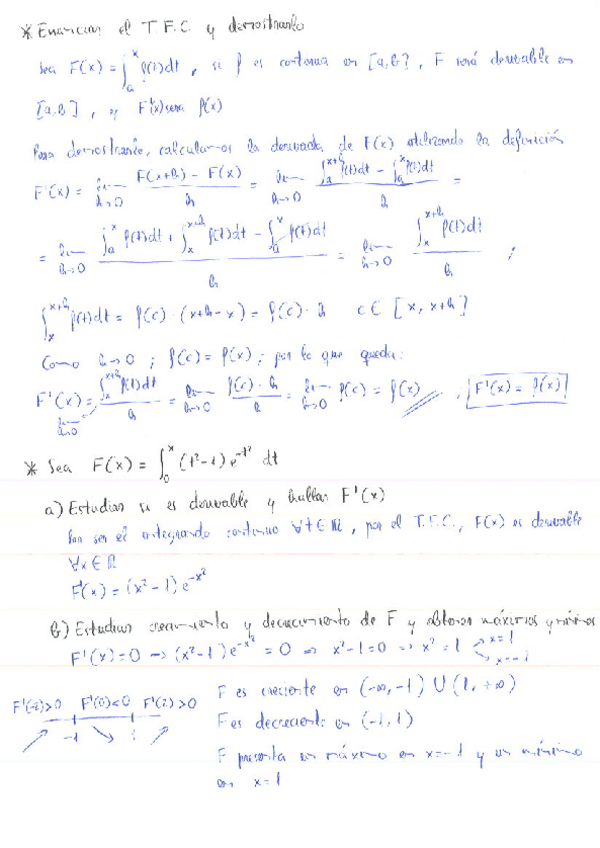 * Enunciar el T.F.C. y demostrarlo
Sea F(x) = ∫ₐˣ f(t)dt, si f es continua en [a,b], F será derivable en
[a,b], y F'(x) será f(x)
Para demostrarlo, calculamos la derivada de F(x) utilizando la definición
F'(x) = lim h→0 (F(x+h) - F(x))/h = lim h→0 (∫ₐˣ⁺ʰ f(t)dt - ∫ₐˣ f(t)dt)/h =
= lim h→0 (∫ₐˣ f(t)dt + ∫ₓˣ⁺ʰ f(t)dt - ∫ₐˣ f(t)dt)/h = lim h→0 (∫ₓˣ⁺ʰ f(t)dt)/h ;
∫ₓˣ⁺ʰ f(t)dt = f(c) · (x+h-x) = f(c) · h c ∈ [x, x+h]
Como h→0 ; f(c) = f(x) ; por lo que queda:
F'(x) = lim h→0 (∫ₓˣ⁺ʰ f(t)dt)/h = lim h→0 (f(c) · h)/h = lim h→0 f(c) = f(x) , F'(x) = f(x)
* Sea F(x) = ∫₀ˣ (t²-1) e^(-t²) dt
a) Estudiar si es derivable y hallar F'(x)
Por ser el integrando continuo ∀t ∈ ℝ, por el T.F.C., F(x) es derivable
∀x ∈ ℝ
F'(x) = (x²-1) e^(-x²)
b) Estudiar crecimiento y decrecimiento de F y obtener máximos y mínimos
F'(x) = 0 → (x²-1) e^(-x²) = 0 → x²-1 = 0 → x² = 1 x=1 x=-1
F'(-2)>0 F'(0)<0 F'(2)>0
-1 1
F es creciente en (-∞, -1) ∪ (1, +∞)
F es decreciente en (-1, 1)
F presenta un máximo en x=-1 y un mínimo
en x=1